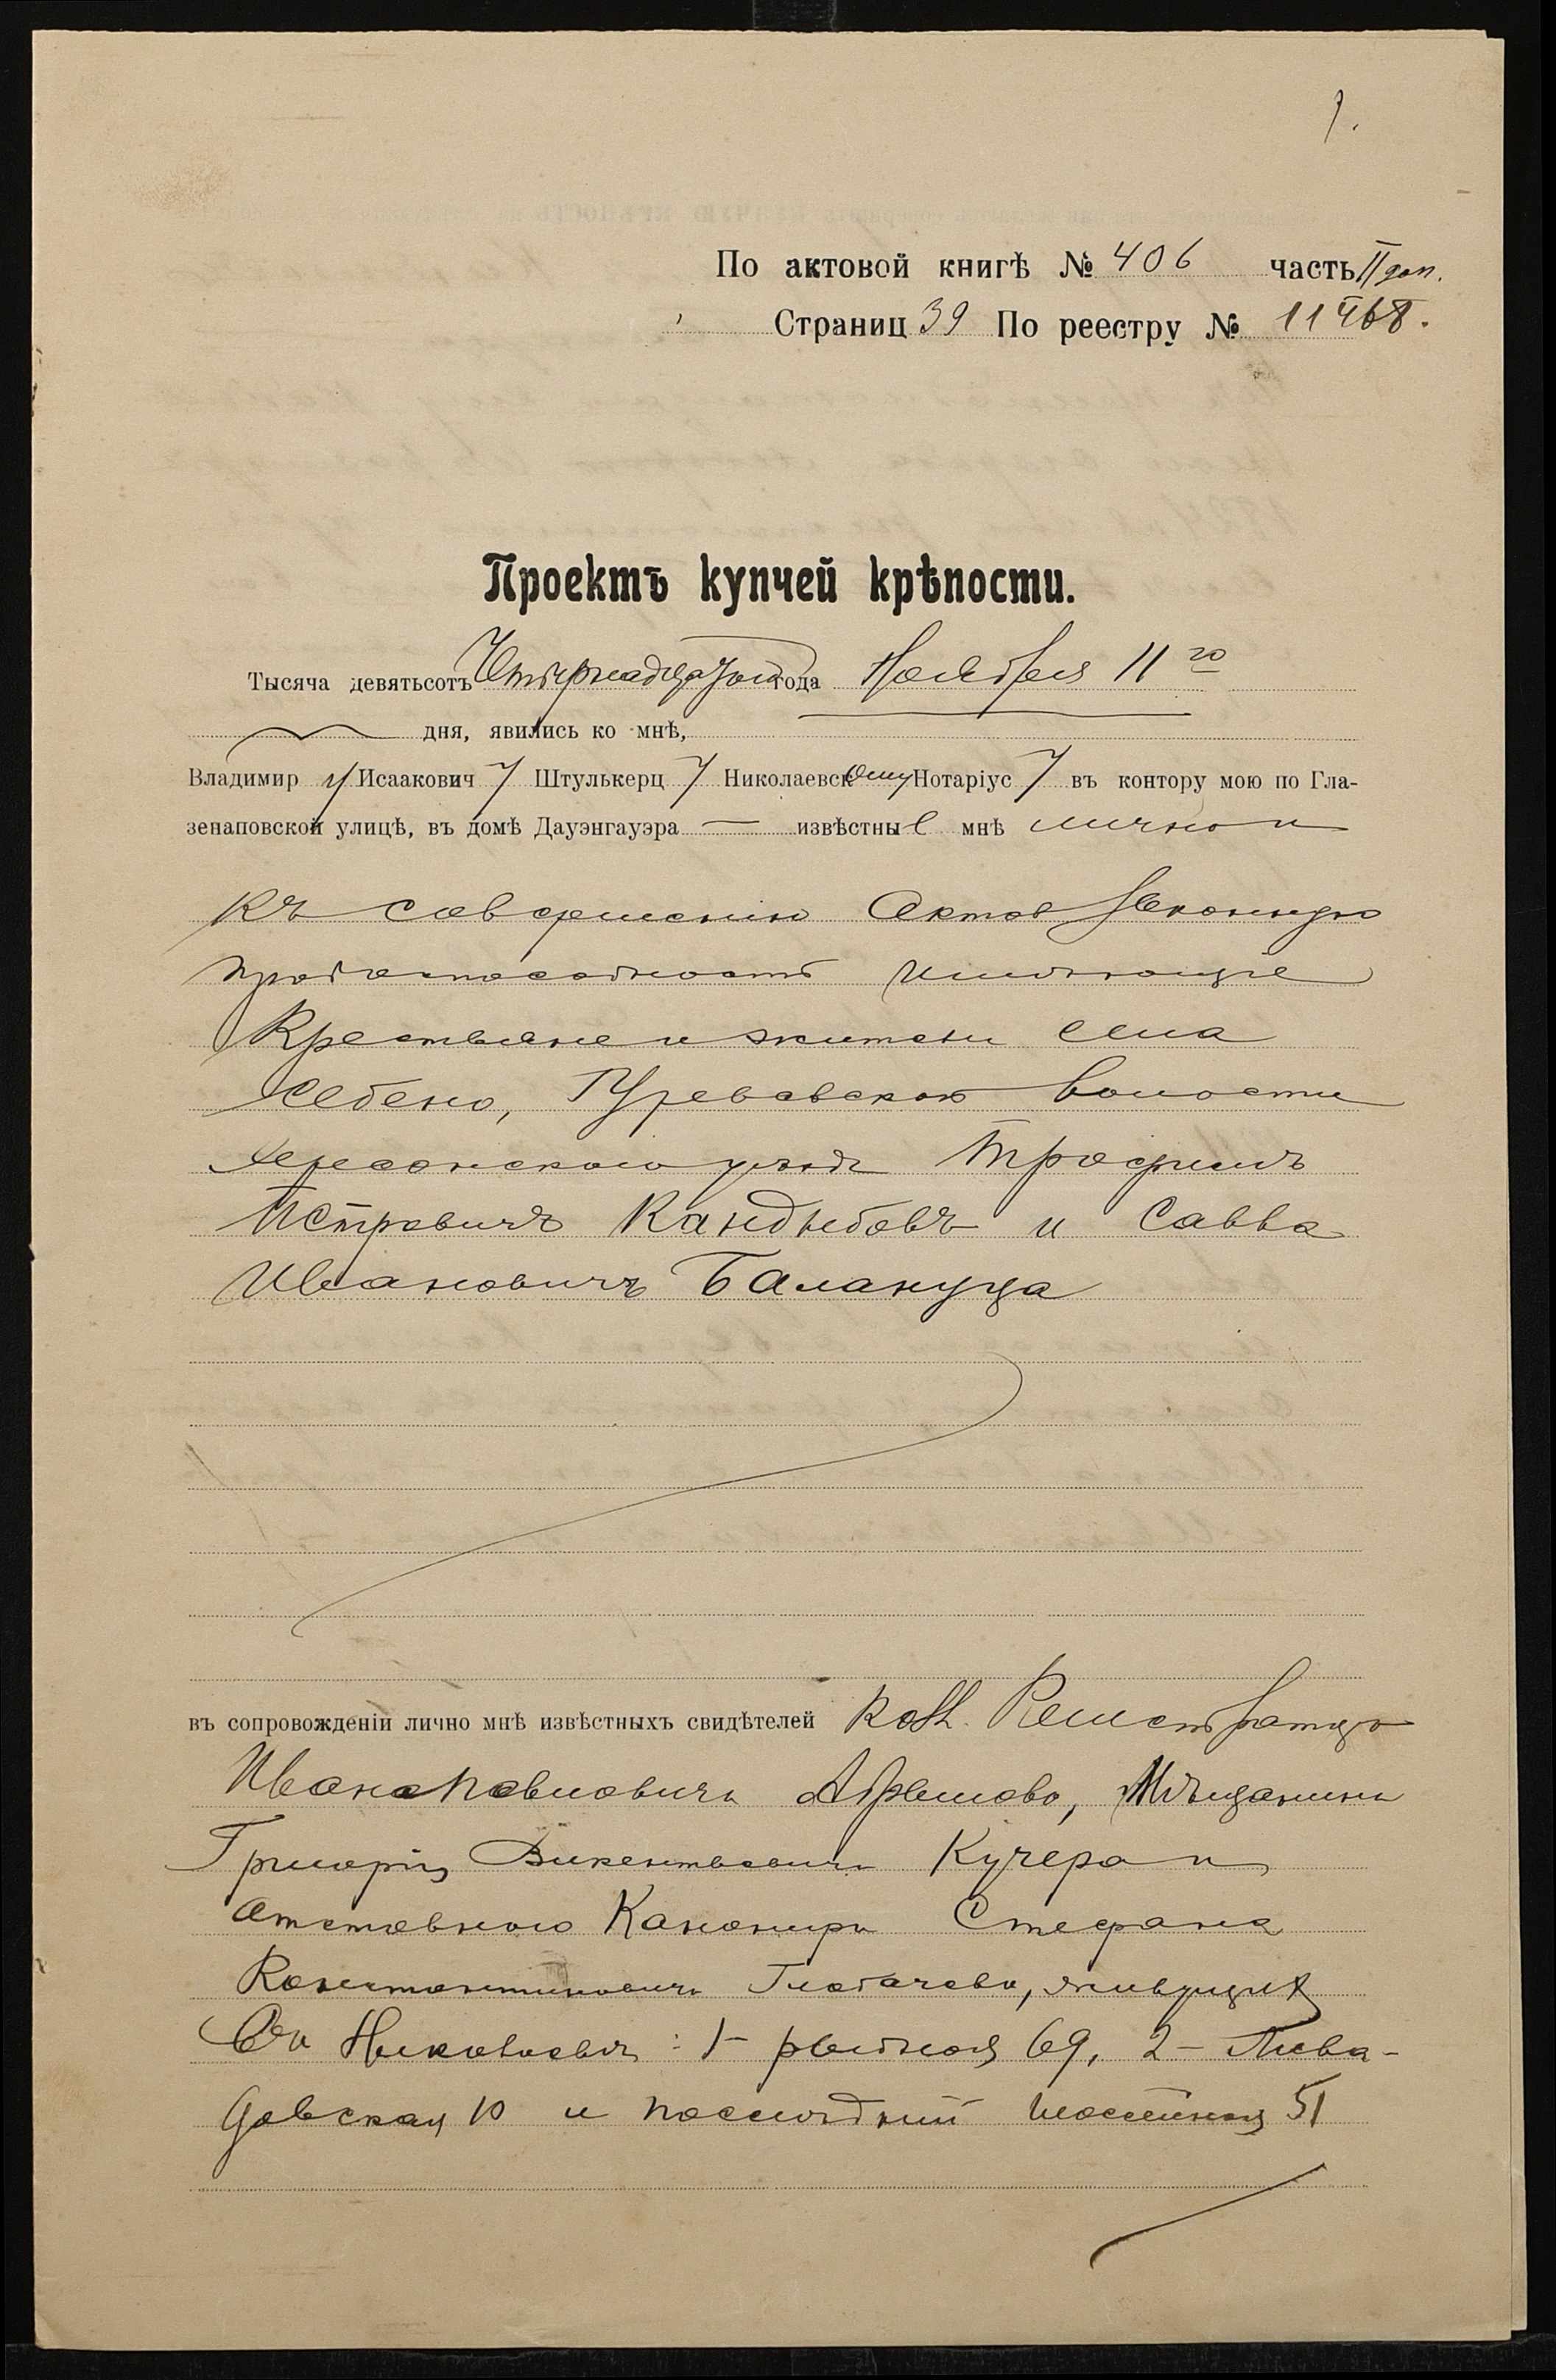 1.
По актовой книгѣ № 406 часть II доп.
Страниц 39 По реестру № 11468.
Проектъ купчей крѣпости.
Тысяча девятьсотъ Четырнадцатого года Ноября 11 го
дня, явились ко мнѣ,
Владимир у Исаакович у Штулькерц у Николаевскому Нотаріус у въ контору мою по Гла-
зенаповской улицѣ, въ домѣ Дауэнгауэра — извѣстные мнѣ лично и
къ совершенію актов законную
правоспособность имѣющіе
Крестьяне и жители села
Себено, Гурьевской волости
Херсонского уѣзда Трофимъ
Петровичъ Кандыбовъ и Савва
Ивановичъ Балануца
въ сопровожденіи лично мнѣ извѣстныхъ свидѣтелей Колл. Регистратора
Ивана Павловича Абрамова, Мѣщанина
Григорія Викентьевича Кучера и
отставного Канонира Стефана
Константиновича Глобачева, живущихъ
въ Николаевѣ: 1- рыбная 69, 2- Лива-
довская 10 и послѣдній Шоссейная 51